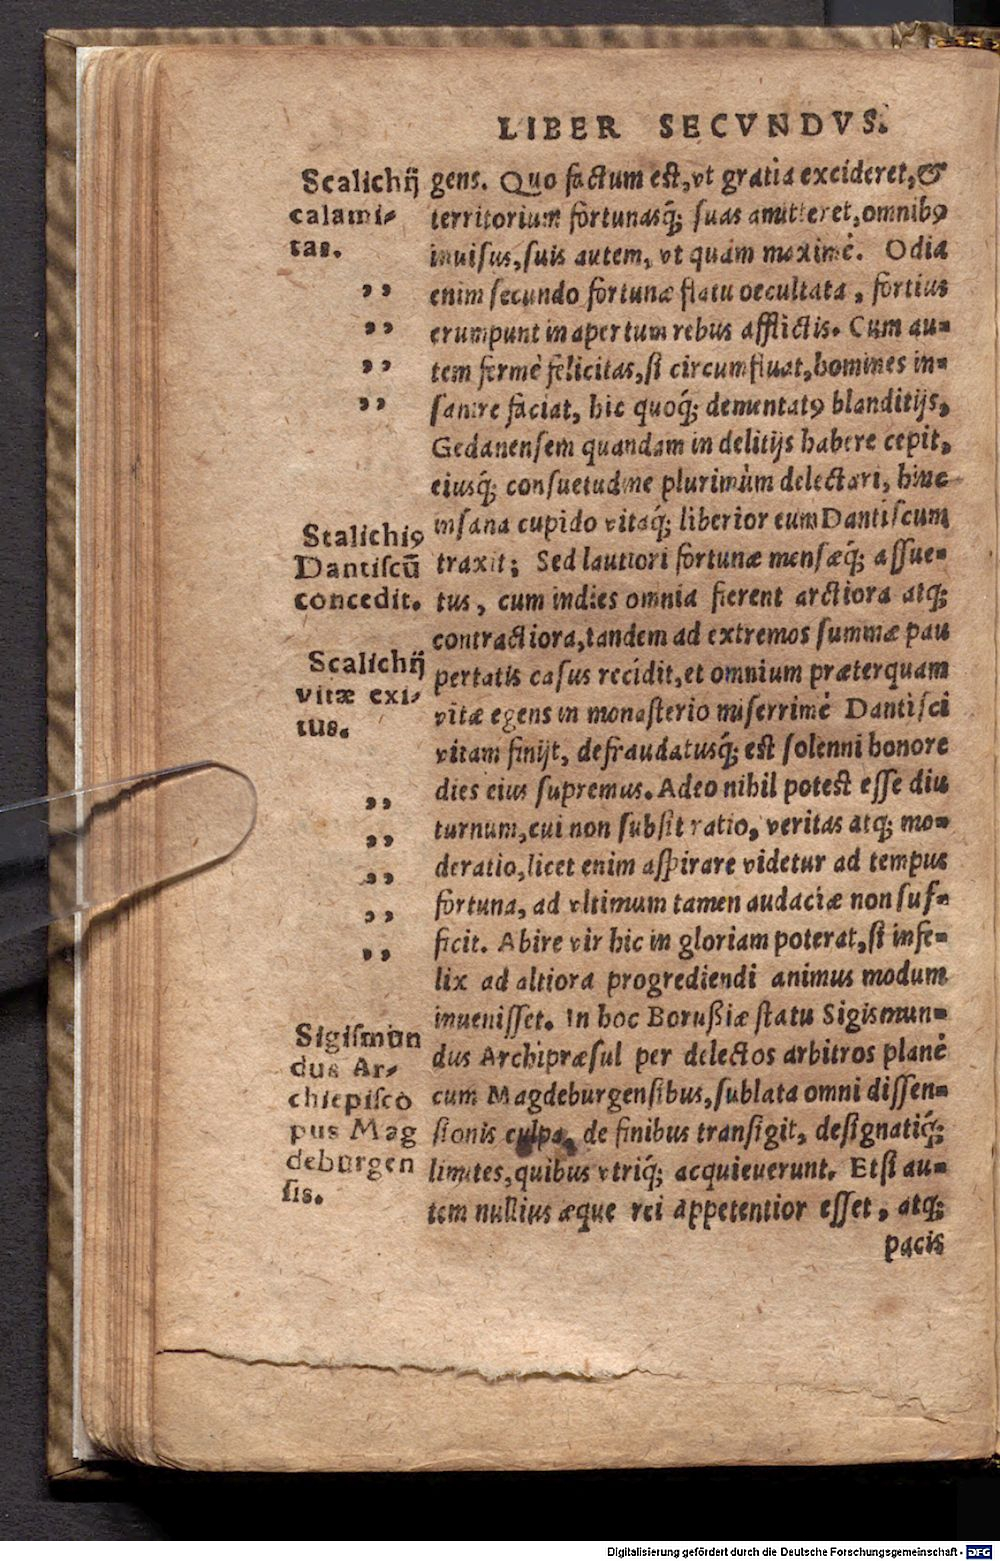 LIBER SECVNDVS.
Scalichij
calami-
tas.
gens. Quo factum est, vt gratia excideret, &
territorium fortunasq́; suas amitteret, omnibꝰ
inuisus, suis autem, vt quàm maximè. Odia
enim secundo fortunæ flatu occultata, fortius
erumpunt in apertum rebus afflictis. Cum au=
tem fermè felicitas, si circumfluat, homines in=
sanire faciat, hic quoq́; dementatꝰ blanditijs,
Gedanensem quandam in delitijs habere cepit,
eiusq́; consuetudine plurimùm delectari, hinc
insana cupido vitaq́; liberior eum Dantiscum
traxit; Sed lautiori fortunæ mensæq́; assue=
tus, cum indies omnia fierent arctiora atq;
contractiora, tandem ad extremos summæ pau
pertatis casus recidit, et omnium præterquam
vitæ egens in monasterio miserrimè Dantisci
vitam finijt, defraudatusq́; est solenni honore
dies eius supremus. Adeo nihil potest esse diu
turnum, cui non subsit ratio, veritas atq; mo=
deratio, licet enim aspirare videtur ad tempus
fortuna, ad vltimum tamen audaciæ non suf=
ficit. Abire vir hic in gloriam poterat, si infe=
lix ad altiora progrediendi animus modum
inuenisset. In hoc Borußiæ statu Sigismun=
dus Archipræsul per delectos arbitros planè
cum Magdeburgensibus, sublata omni dissen=
sionis culpa, de finibus transigit, designatiq́;
limites, quibus vtriq́; acquieuerunt. Etsi au=
tem nullius æque rei appetentior esset, atq;
pacis
„
„
„
„
Stalichiꝰ
Dantiscū
concedit.
Scalichij
vitæ exi-
tus.
„
„
„
„
„
Sigismun
dus Ar-
chiepisco
pus Mag
deburgen
sis.
Digitalisierung gefördert durch die Deutsche Forschungsgemeinschaft - DFG